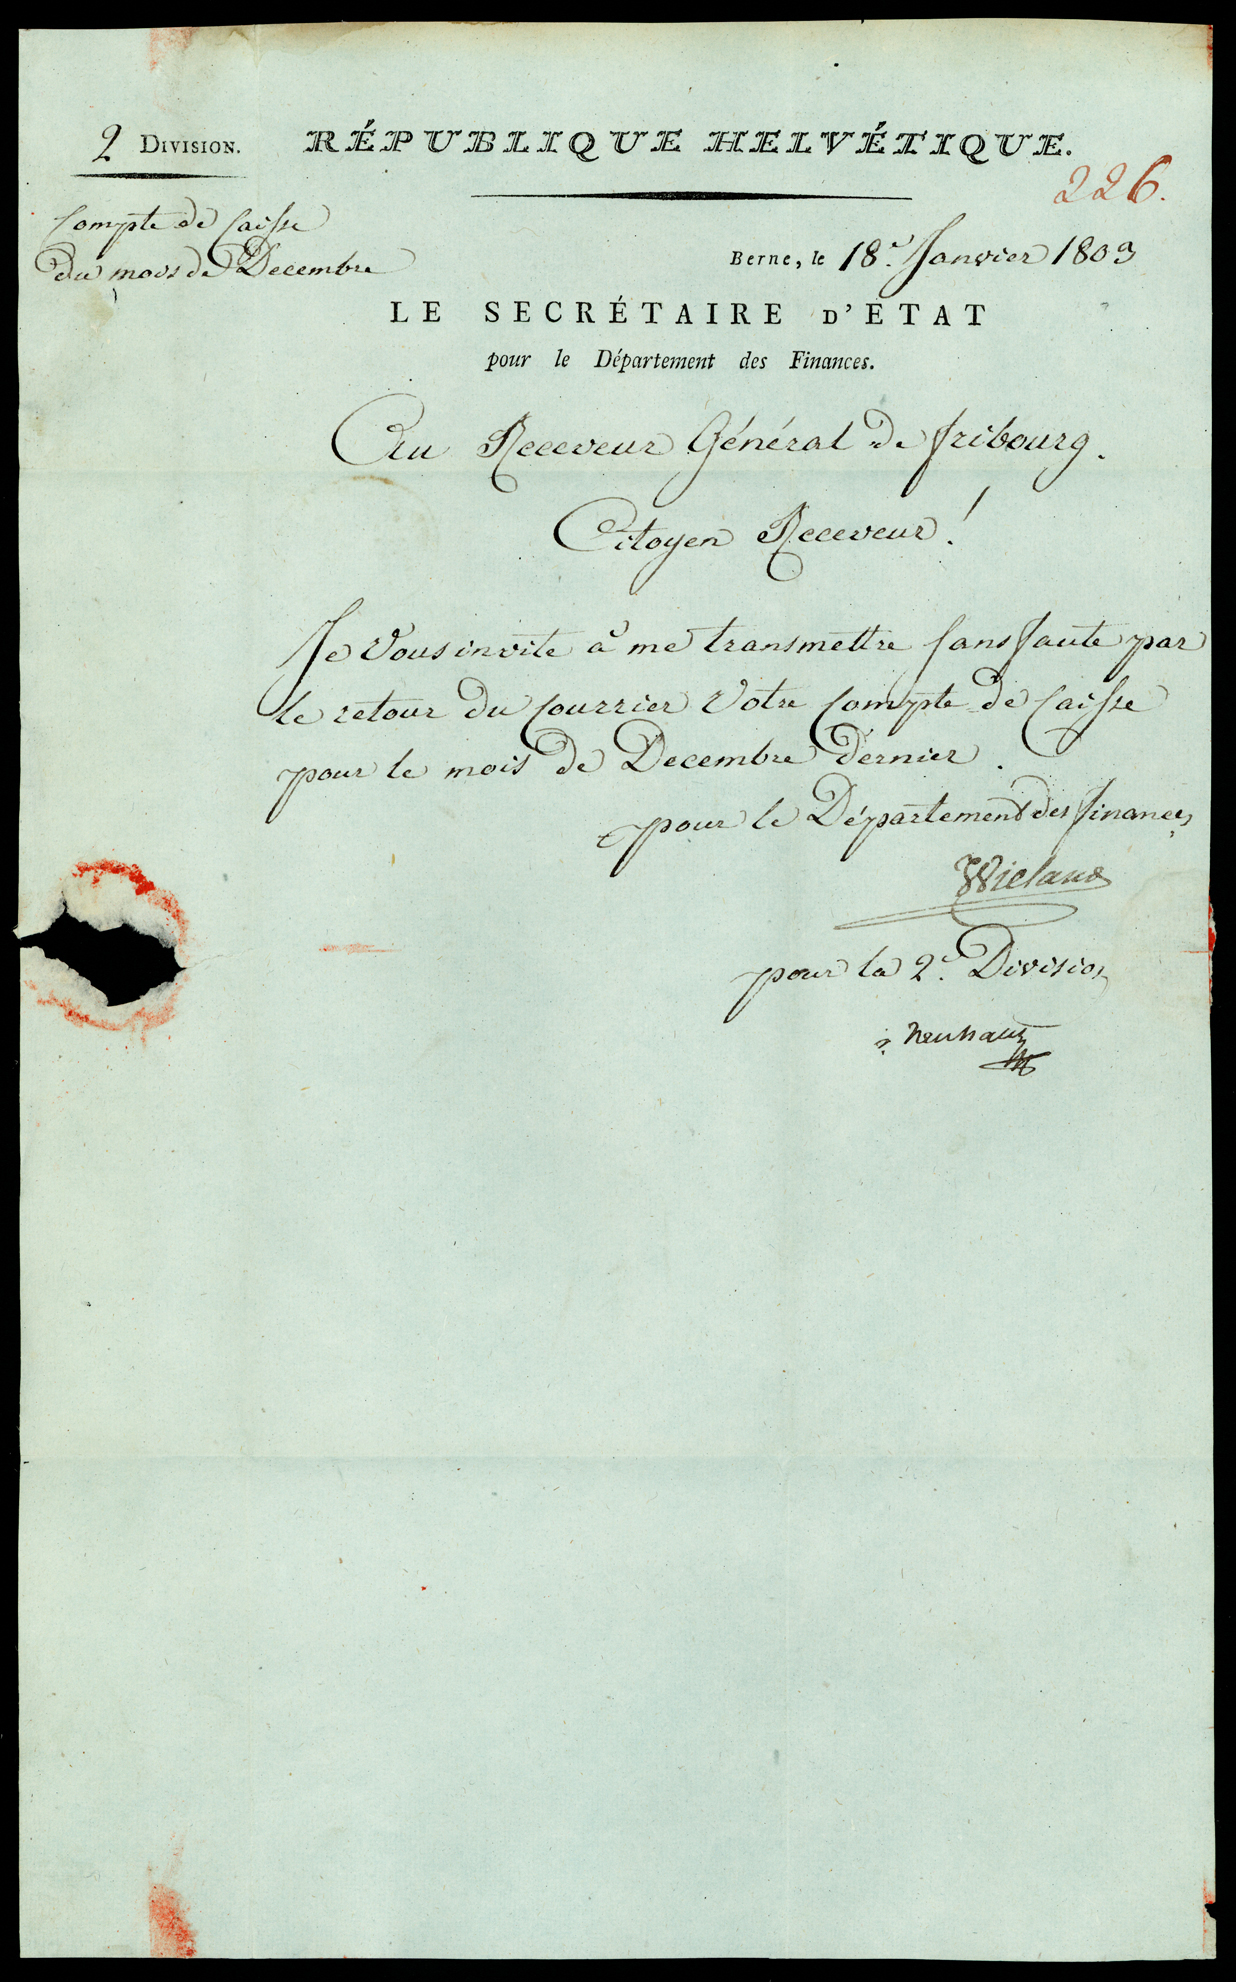 2 DIVISION.
RÉPUBLIQUE HELVÉTIQUE.
226.
Compte de Caisse
du mois de Decembre
Berne, le 18.e Janvier 1803
LE SECRÉTAIRE D'ÉTAT
pour le Département des Finances.
Au Receveur Général de Fribourg.
Citoyen Receveur!
Je Vous invite à me transmettre sans faute par
le retour du Courrier Votre Compte de Caisse
pour le mois de Decembre dernier.
pour le Département des finances,
Wieland
pour la 2.e Division
Neuhaus